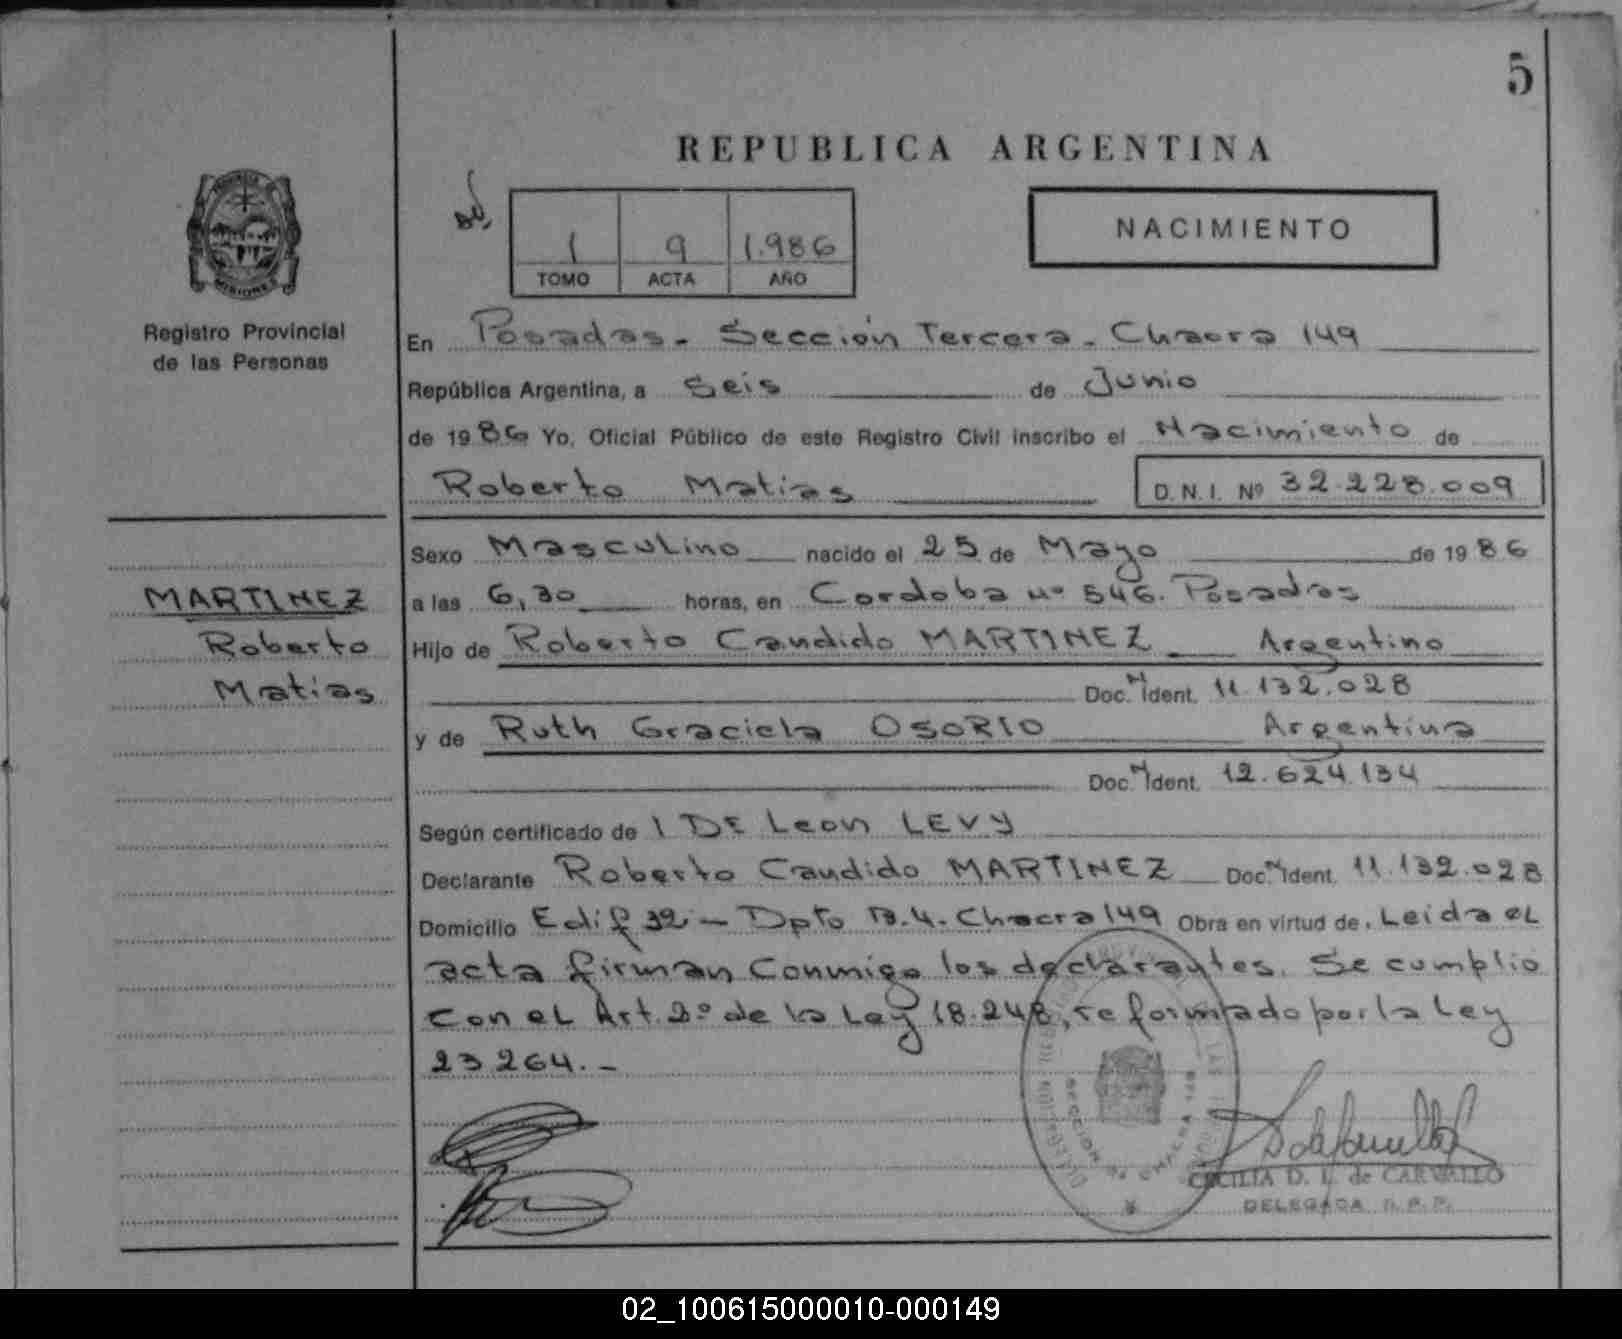 5
REPUBLICA ARGENTINA
1 9 1.986
TOMO ACTA AÑO
NACIMIENTO
PROVINCIA DE
MISIONES
Registro Provincial
de las Personas
En Posadas. Sección Tercera. Chacra 149
República Argentina, a Seis de Junio
de 1986 Yo, Oficial Público de este Registro Civil inscribo el Nacimiento de
Roberto Matias D.N.I. Nº 32.228.009
Sexo Masculino nacido el 25 de Mayo de 1986
MARTINEZ
Roberto
Matias
a las 6,30 horas, en Cordoba nº 546. Posadas
Hijo de Roberto Candido MARTINEZ Argentino
Doc. N Ident. 11.132.028
y de Ruth Graciela OSORIO Argentina
Doc. N Ident. 12.624.134
Según certificado de 1 De Leon LEVY
Declarante Roberto Candido MARTINEZ Doc. N Ident. 11.132.028
Domicilio Edif 32 - Dpto B.4. Chacra 149 Obra en virtud de, Leida el
acta firman conmigo los declarantes. Se cumplio
con el Art. 2º de la Ley 18.248, reformado por la Ley
23264.-
CECILIA D. L. de CARVALLO
DELEGADA R.P.P.
02_100615000010-000149